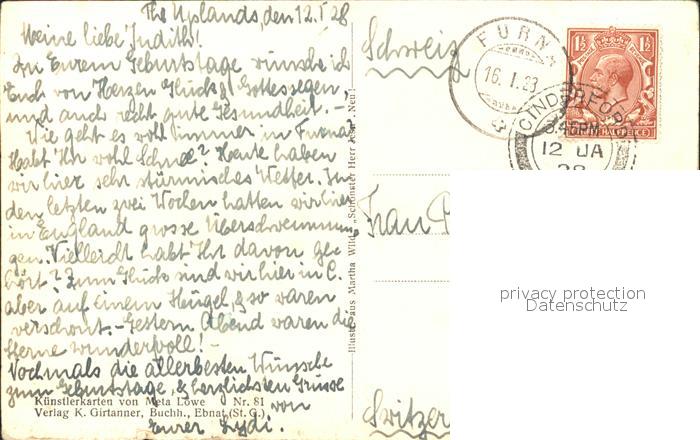 The Uplands, den 12. I 28
Meine liebe Judith!
Zu Eurem Geburtstage wünsche ich
Euch von Herzen Glück, Gottessegen,
und auch recht gute Gesundheit. -
Wie geht es wohl immer in Furna?
Habt Ihr wohl Schnee? Heute haben
wir hier sehr stürmisches Wetter. In
den letzten zwei Wochen hatten wir hier
in England grosse Überschwemmun-
gen. Vielleicht habt Ihr davon ge-
hört? Zum Glück sind wir hier in C.
aber auf einem Heugel, & so waren
verschont. - Gestern Abend waren die
Sterne wundervoll! -
Nochmals die allerbesten Wünsche
zum Geburtstage, & herzlichsten Grüsse
von
Eurer Lydi.
Künstlerkarten von Meta Löwe Nr. 81
Verlag K. Girtanner, Buchh., Ebnat (St. G.)
Illustr. aus Martha Wild: „Schönster Herr Jesu". Neu!
Schweiz
FURNA
16. I. 28
1½ 1½
THREE HALFPENCE
CINDERFORD
3.45PM
12 JA
28
Frau
Switzer
privacy protection
Datenschutz